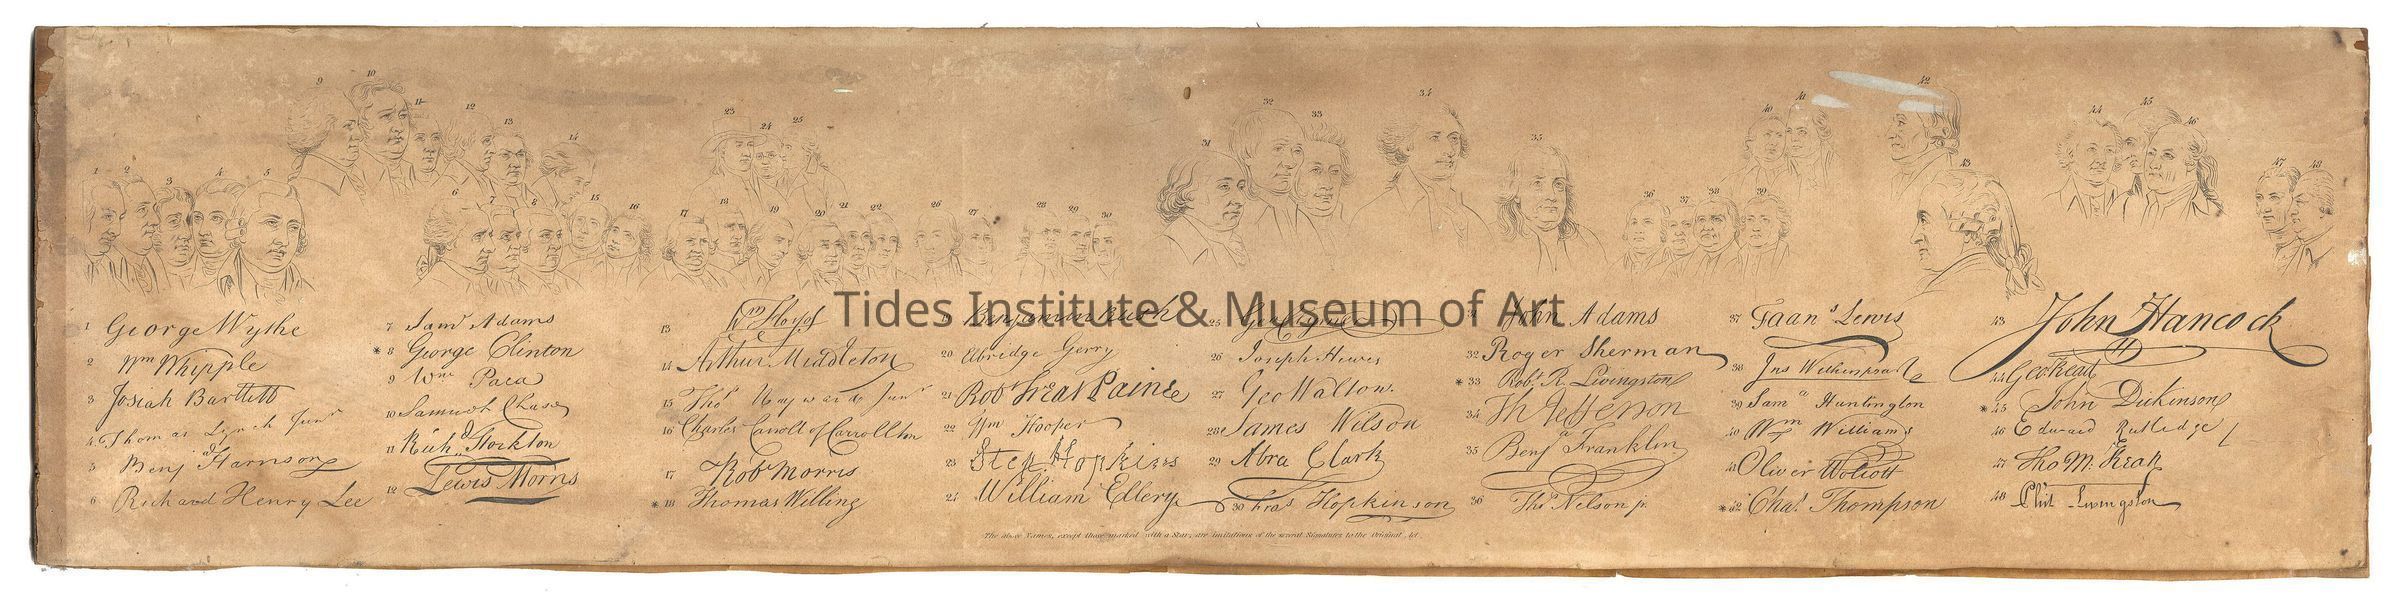 9 10 11 12 13 14
1 2 3 4 5 6 7 8 15 16
23 24 25
17 18 19 20 21 22 26 27 28 29 30
31 32 33 34 35
36 37 38 39 40 41 42 43
44 45 46 47 48
Tides Institute & Museum of Art
1 George Wythe
2 Wm Whipple
3 Josiah Bartlett
4 Thomas Lynch Junr
5 Benj Harrison
6 Richard Henry Lee
7 Saml Adams
* 8 George Clinton
9 Wm Paca
10 Samuel Chase
11 Richd Stockton
12 Lewis Morris
13 Wm Floyd
14 Arthur Middleton
15 Thos Heyward Junr
16 Charles Carroll of Carrollton
17 Robt Morris
* 18 Thomas Willing
Benjamin Rush
20 Elbridge Gerry
21 Robt Treat Paine
22 Wm Hooper
23 Step. Hopkins
24 William Ellery
25 Geo Clymer
26 Joseph Hewes
27 Geo Walton
28 James Wilson
29 Abra Clark
30 Fras Hopkinson
John Adams
32 Roger Sherman
* 33 Robt R. Livingston
34 Th Jefferson
35 Benja Franklin
36 Thos Nelson jr.
37 Frans Lewis
38 Jno Witherspoon
39 Saml Huntington
40 Wm Williams
41 Oliver Wolcott
* 42 Chas Thompson
43 John Hancock
44 Geo Read
* 45 John Dickinson
46 Edward Rutledge /
47 Tho M: Kean
48 Phil Livingston
The above Names, except those marked with a Star, are imitations of the several Signatures to the Original Act.